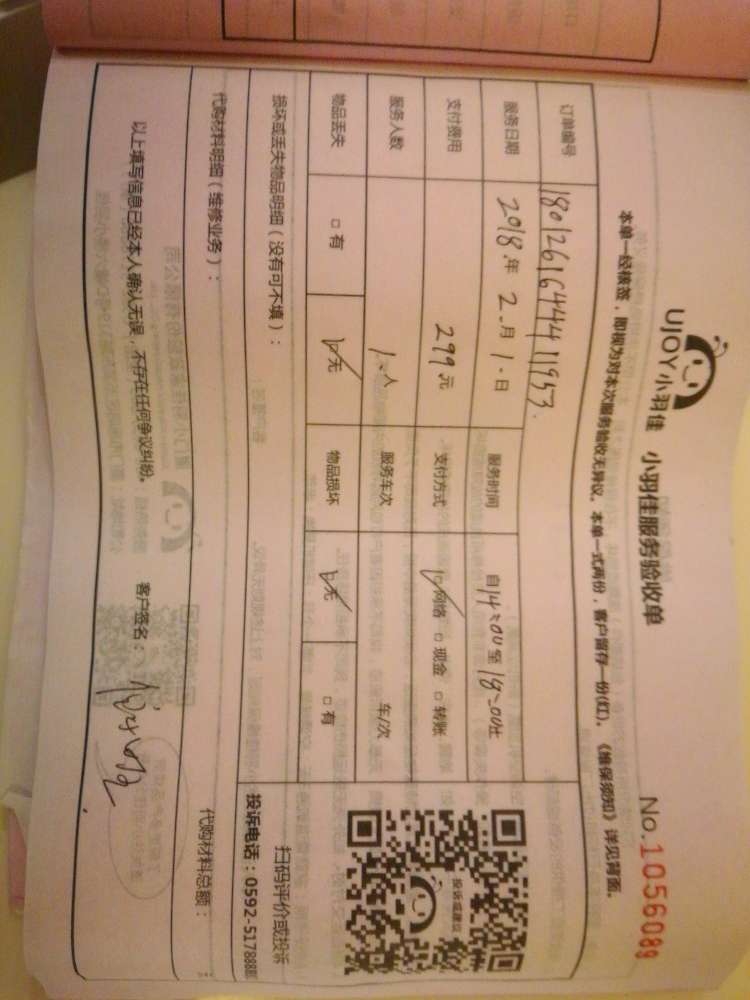 UJOY小羽佳 小羽佳服务验收单 No.1056089
本单一经核签，即视为对本次服务验收无异议。本单一式两份，客户留存一份(红)。《维保须知》详见背面。
订单编号 18012616444411953
服务日期 2018年2月1日 服务时间 自14:00至18:00止
支付费用 299元 支付方式 □网络 □现金 □转账
服务人数 1人 服务车次 车/次
物品丢失 □有 □无 物品损坏 □无 □有
损坏或丢失物品明细（没有可不填）：
投诉或建议
扫码评价或投诉
投诉电话：0592-517888
代购材料明细（维修业务）： 代购材料总额：
以上填写信息已经本人确认无误，不存在任何争议纠纷。 客户签名：